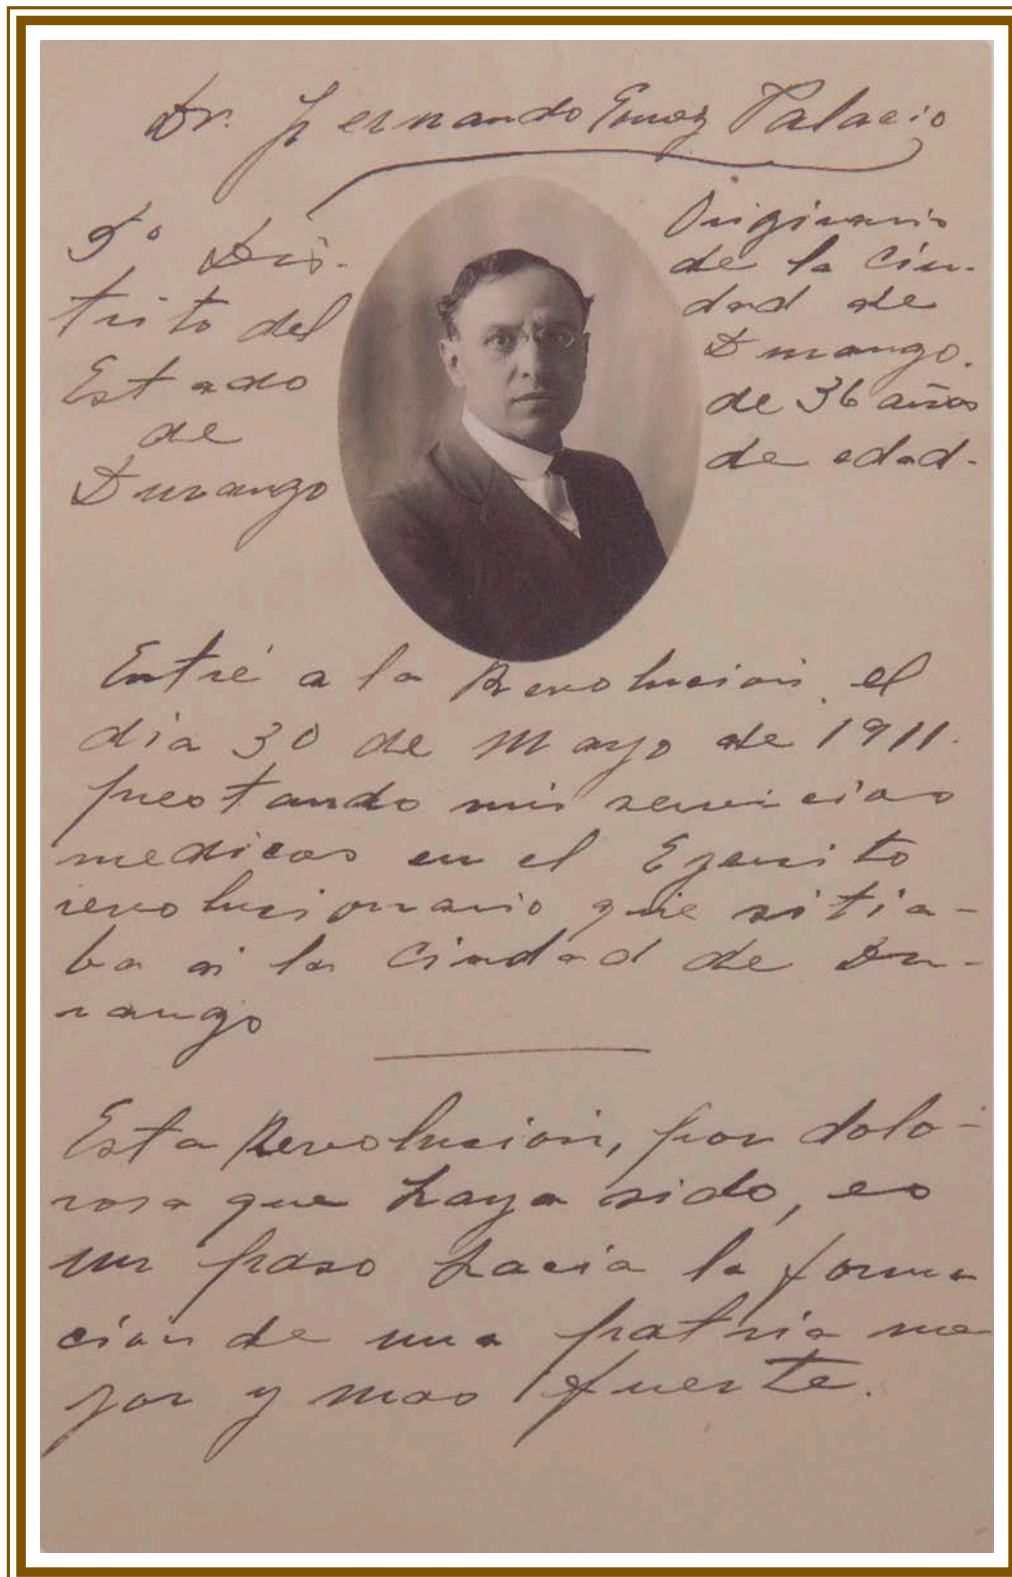 Dr. Fernando Gomez Palacio
5º Dis-
trito del
Estado
de
Durango
Originario
de la Ciu-
dad de
Durango.
de 36 años
de edad.
Entré a la Revolucion el
dia 30 de Mayo de 1911.
prestando mis servicios
medicos en el Ejercito
revolucionario que sitia-
ba a la Ciudad de Du-
rango
Esta Revolucion, por dolo-
rosa que haya sido, es
un paso hacia la forma
cion de una patria me
jor y mas fuerte.